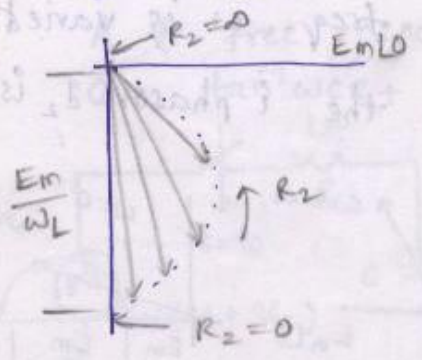 R₂=∞
Em∠0
Em
ωL
R₂
R₂=0